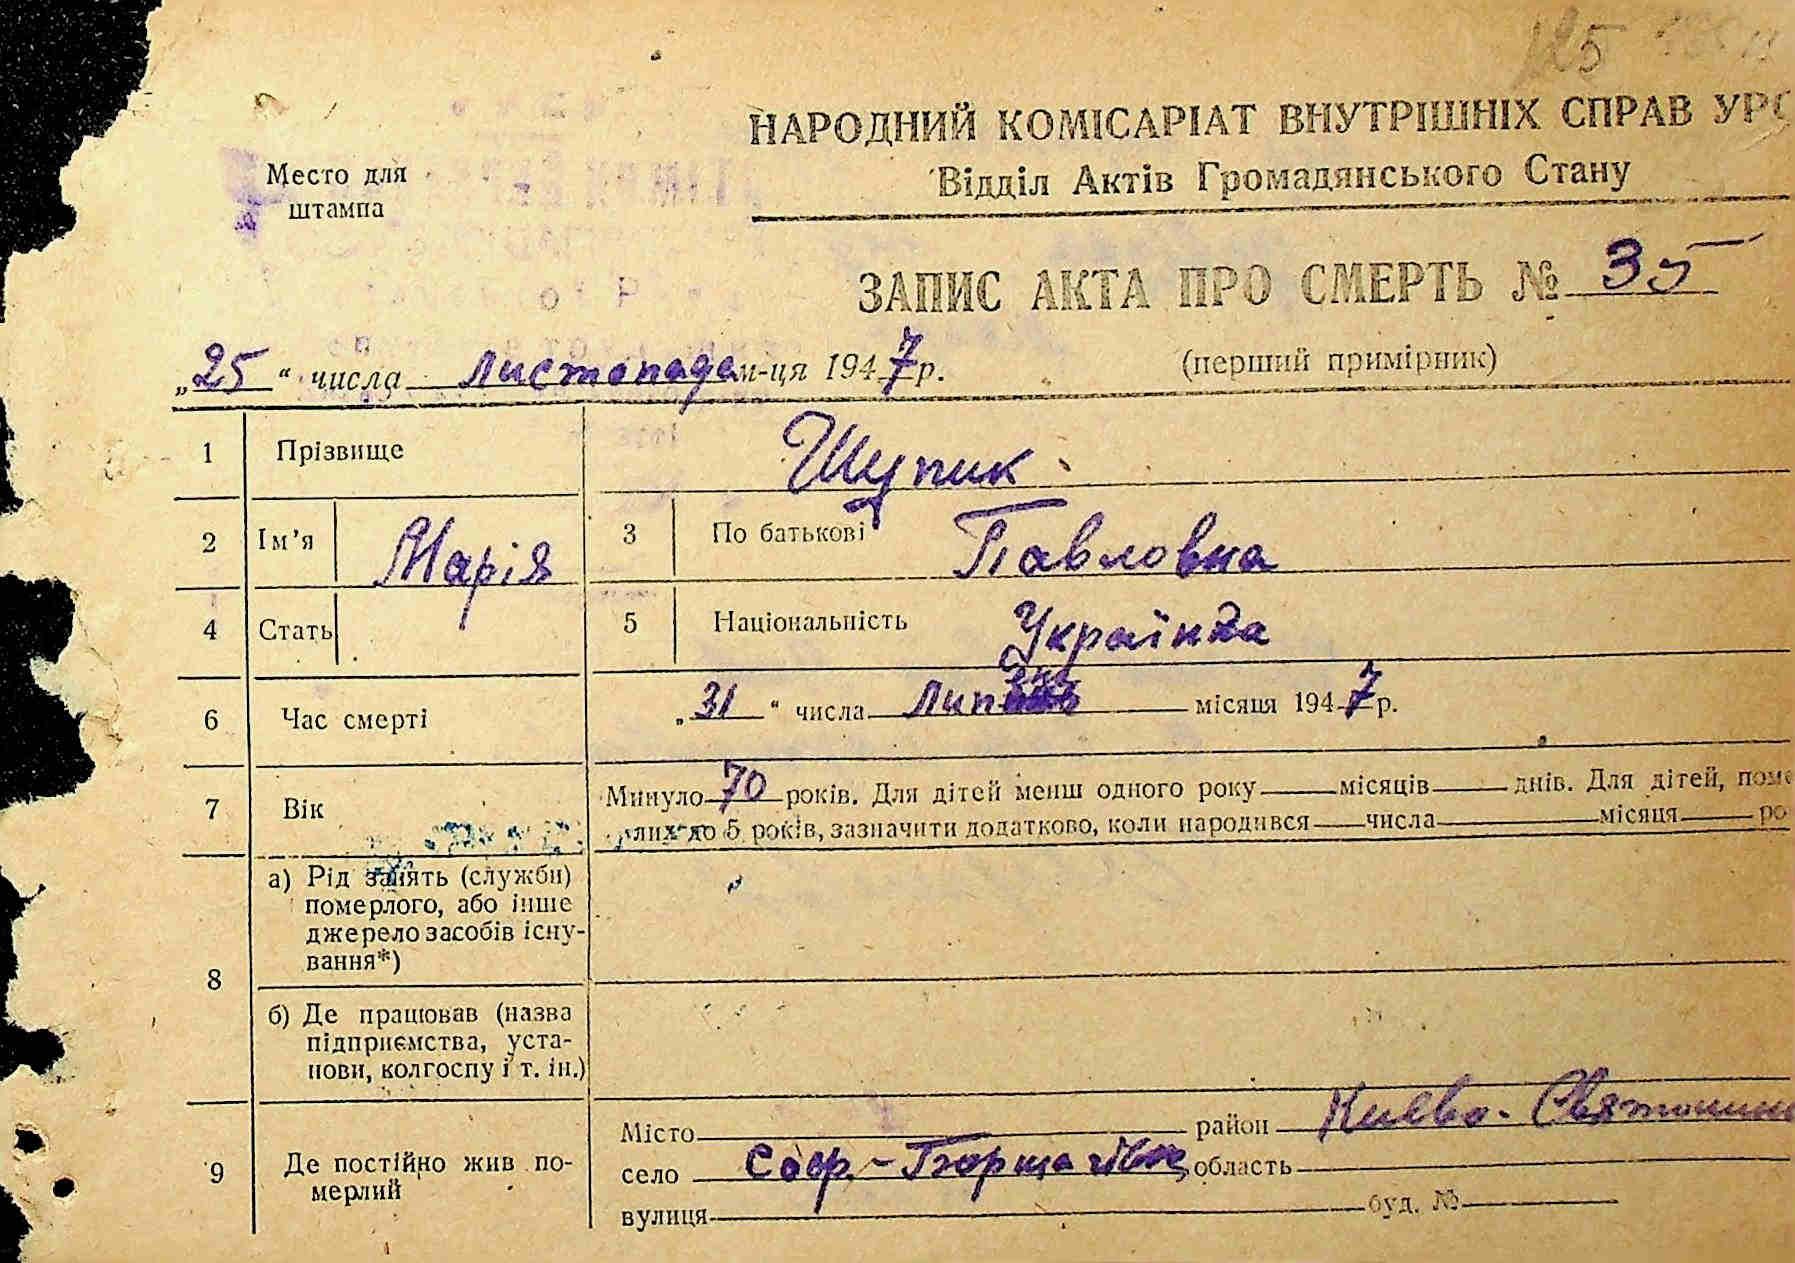 125
НАРОДНИЙ КОМІСАРІАТ ВНУТРІШНІХ СПРАВ УРС
Відділ Актів Громадянського Стану
Место для
штампа
ЗАПИС АКТА ПРО СМЕРТЬ № 35
„25“ числа листопада м-ця 1947 р.
(перший примірник)
1 Прізвище Щупик
2 Ім’я Марія 3 По батькові Павловна
4 Стать 5 Національність Українка
6 Час смерті „31“ числа місяця 1947 р.
7 Вік Минуло 70 років. Для дітей менш одного року місяців днів. Для дітей, поме
лих до 5 років, зазначити додатково, коли народився числа місяця ро
8 а) Рід занять (служби)
померлого, або інше
джерело засобів існу-
вання*)
б) Де працював (назва
підприємства, уста-
нови, колгоспу і т. ін.)
9 Де постійно жив по-
мерлий
Місто район Києво-Святошин
село Соф.-Борщагівка область
вулиця буд. №